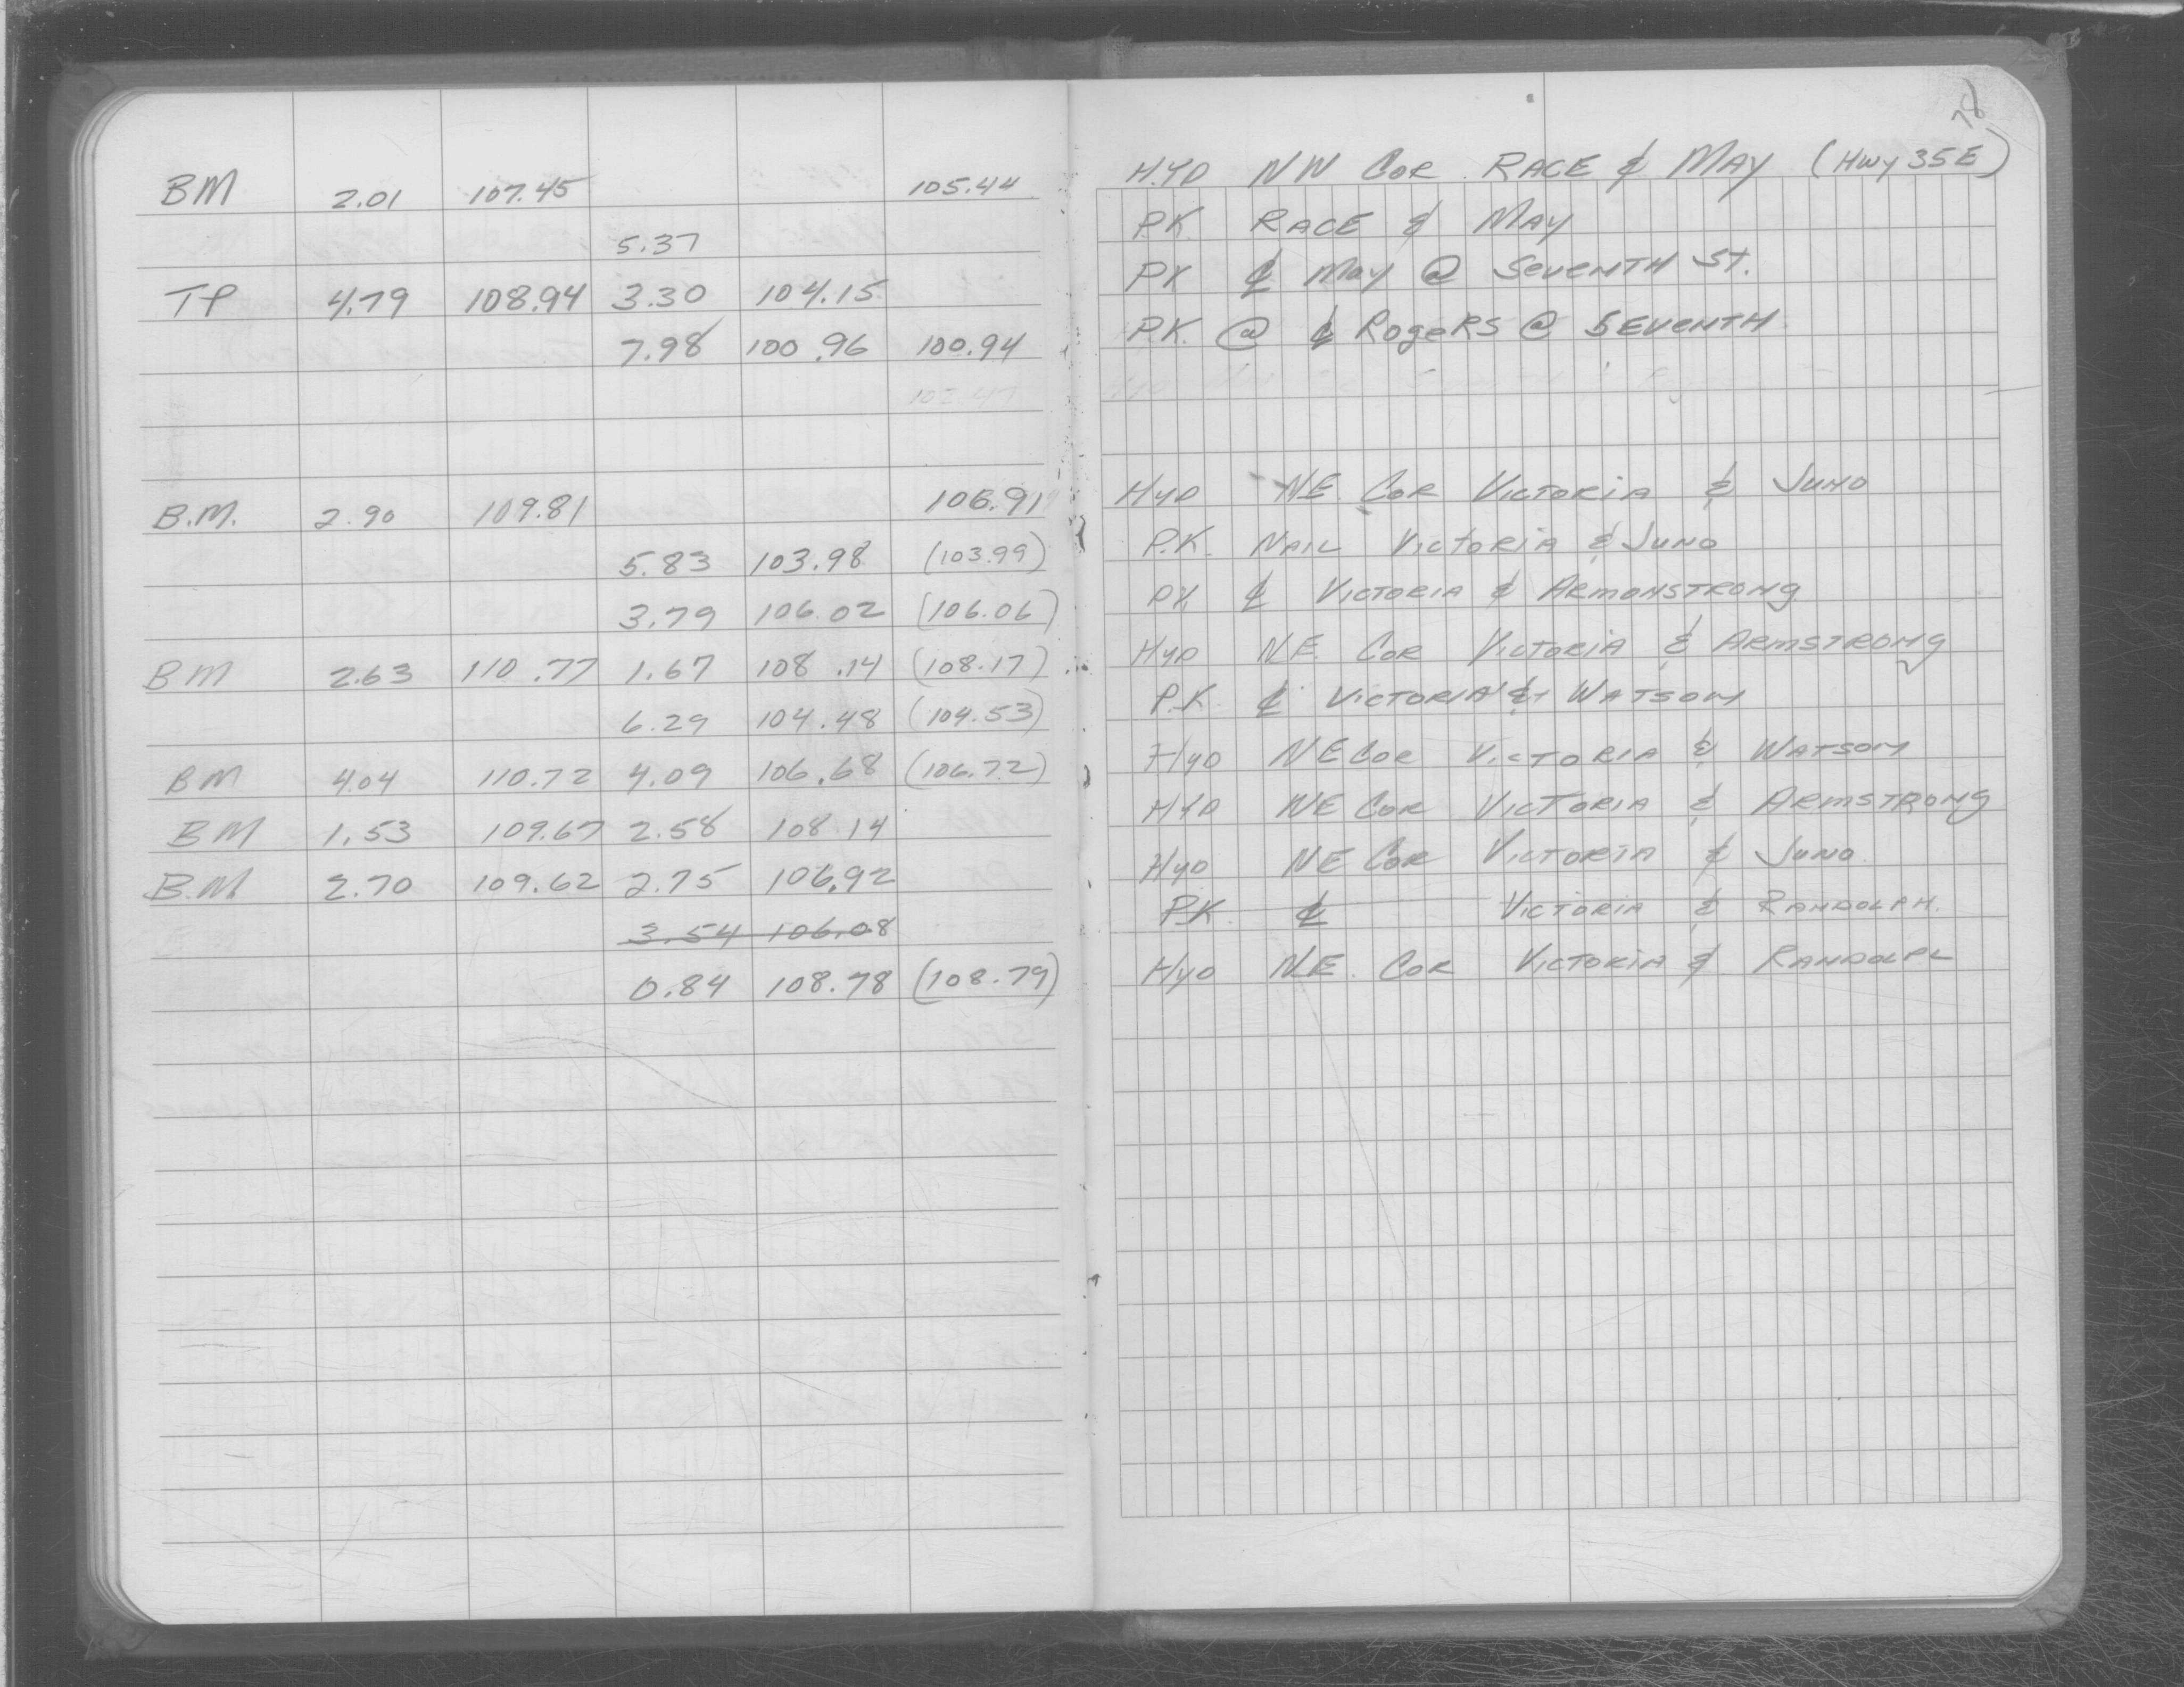 78
BM 2.01 107.45 105.44 HYD NW Cor. RACE & MAY (Hwy 35E)
5.37 P.K. RACE & MAY
TP 4.79 108.94 3.30 104.15 PK ℄ May @ SEVENTH ST.
7.98 100.96 100.94 P.K. @ ℄ ROGERS @ SEVENTH
102.47
B.M. 2.90 109.81 106.91 HYD NE. COR VICTORIA & JUNO
5.83 103.98 (103.99) P.K. NAIL VICTORIA & JUNO
3.79 106.02 (106.06) PK ℄ VICTORIA & ARMONSTRONG
BM 2.63 110.77 1.67 108.14 (108.17) HYD NE. COR VICTORIA & ARMSTRONG
6.29 104.48 (104.53) P.K. ℄ VICTORIA & WATSON
BM 4.04 110.72 4.09 106.68 (106.72) HYD NE COR VICTORIA & WATSON
BM 1.53 109.67 2.58 108.14 HYD NE COR VICTORIA & ARMSTRONG
B.M 2.70 109.62 2.75 106.92 HYD NE COR VICTORIA & JUNO.
3.54 106.08 P.K. ℄ VICTORIA & RANDOLPH.
0.84 108.78 (108.79) HYD NE. COR VICTORIA & RANDOLPH